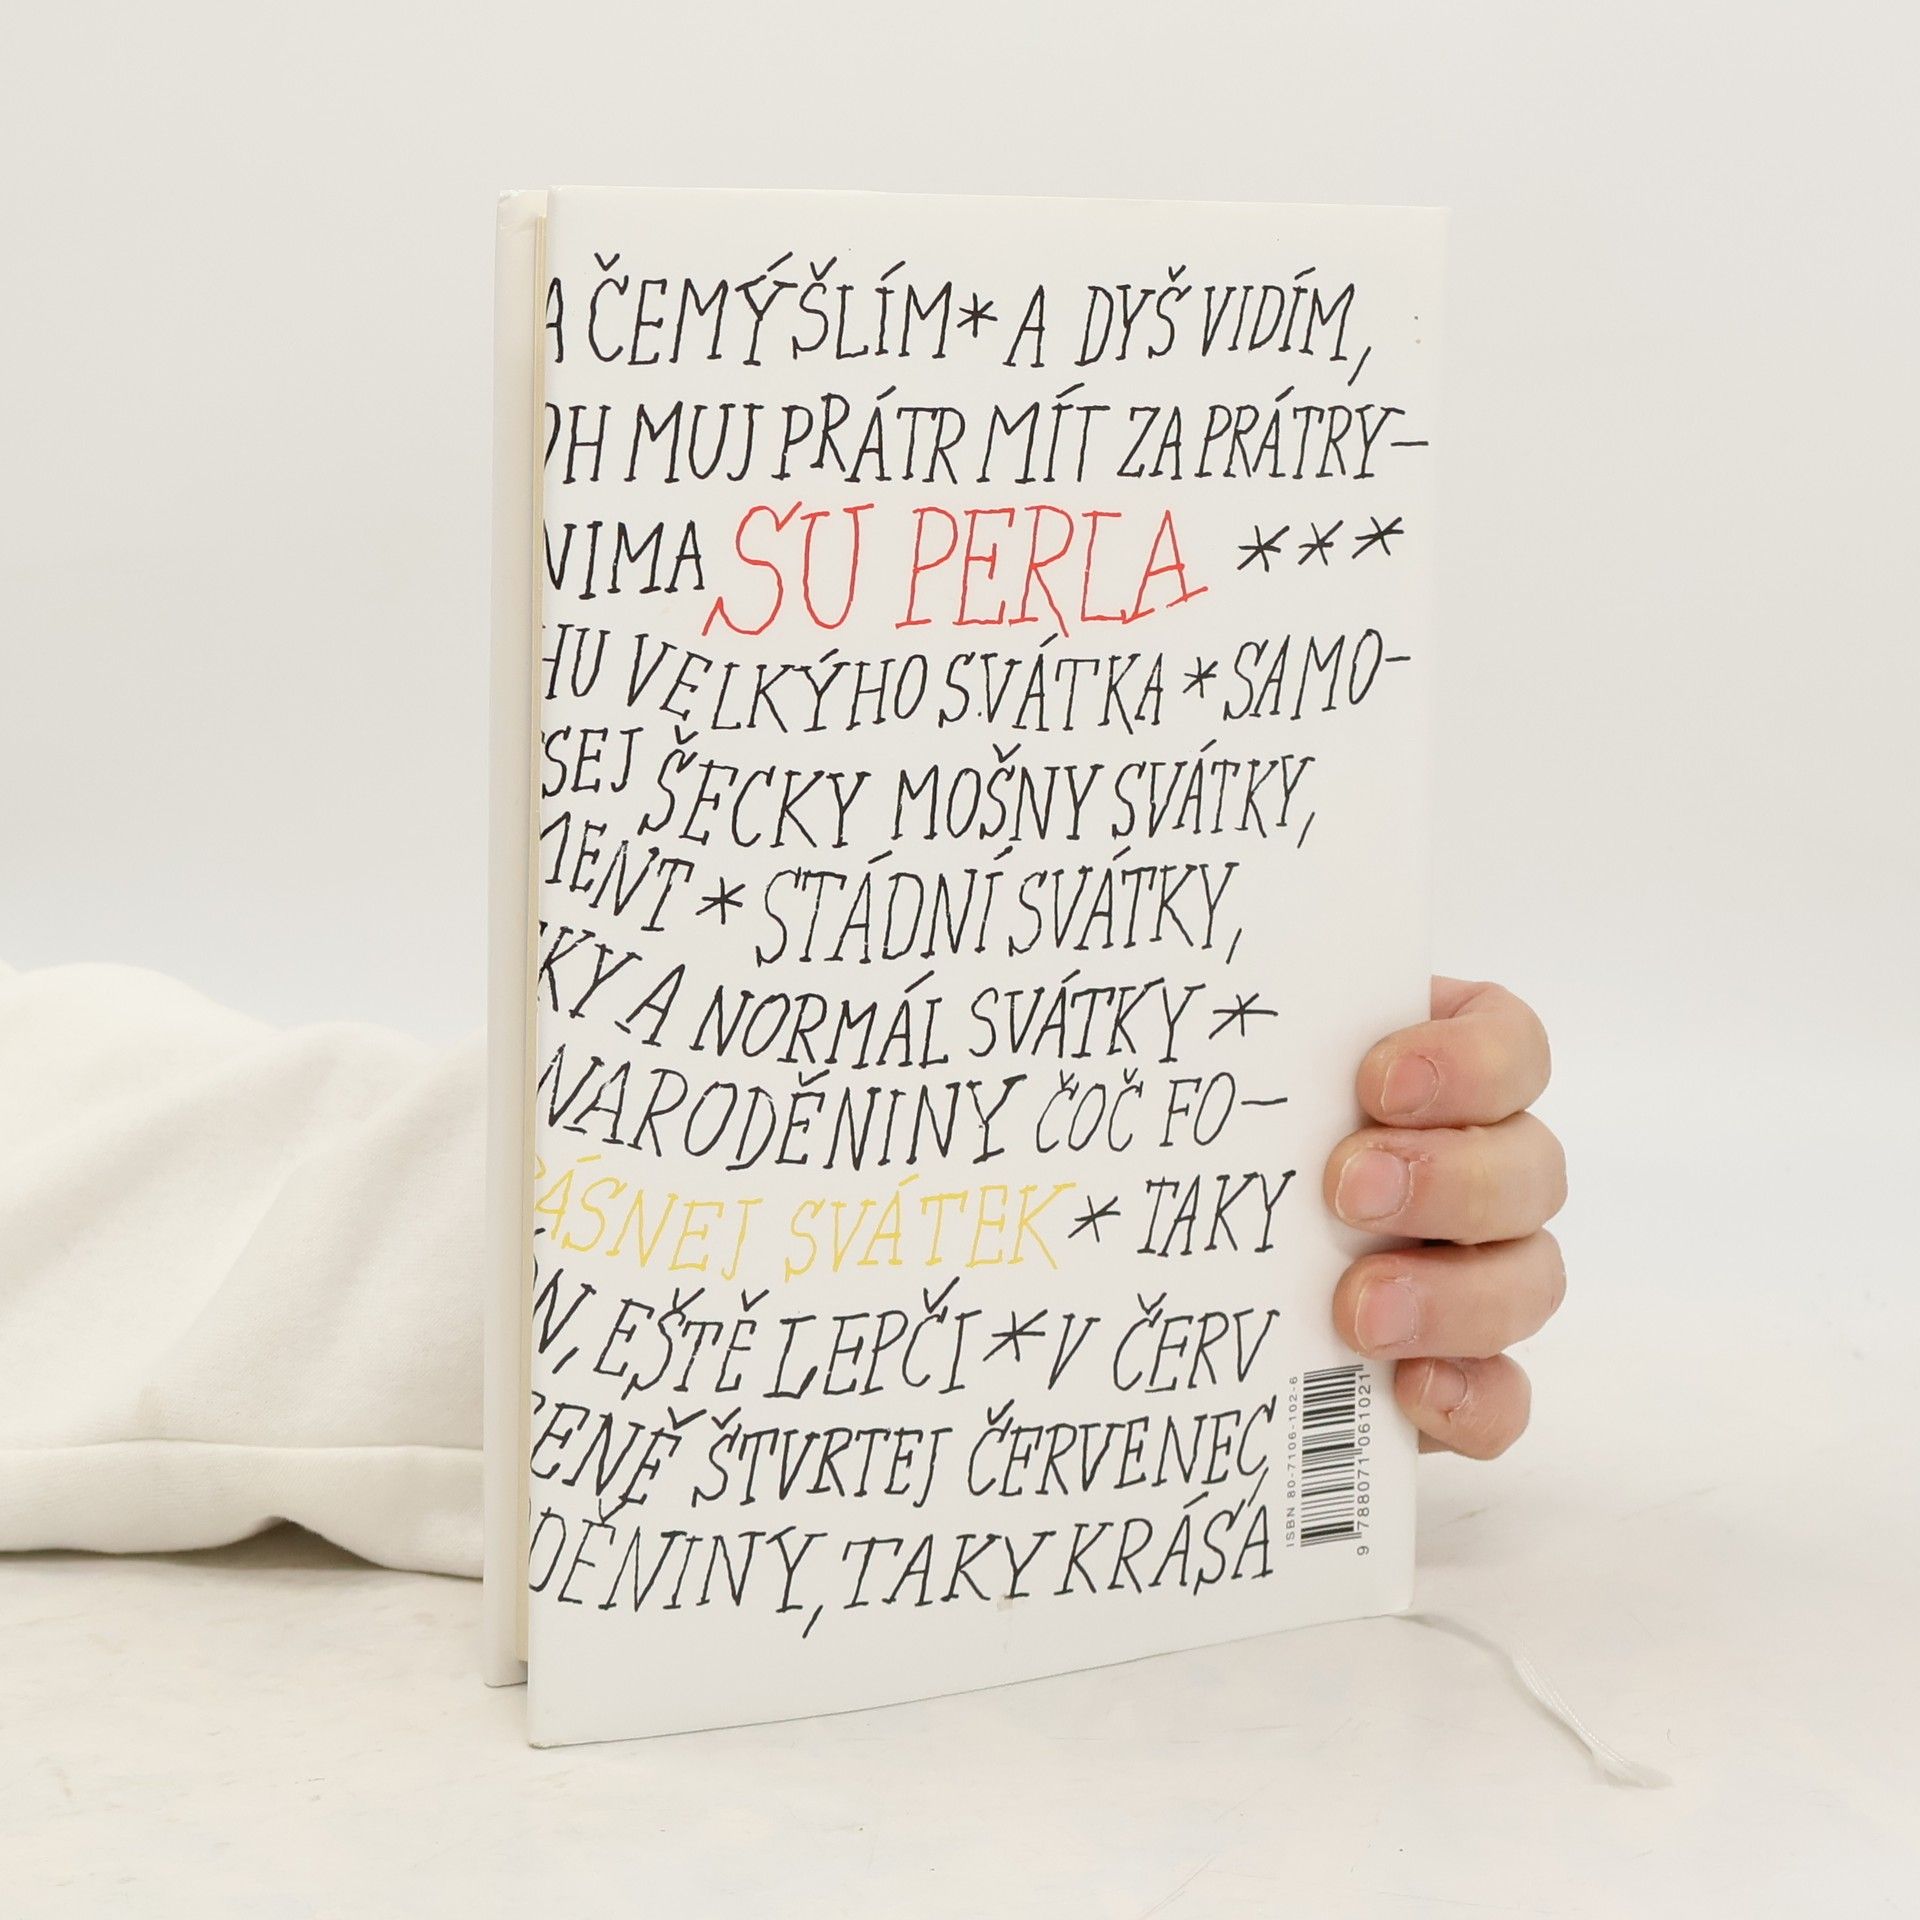 A ČEMÝŠLÍM * A DYŠ VIDÍM,
OH MUJ PRÁTR MÍT ZA PRÁTRY-
NIMA SU PERLA ***
HU VELKÝHO SVÁTKA * SAMO-
SEJ ŠECKY MOŠNY SVÁTKY,
MENT * STÁDNÍ SVÁTKY,
KY A NORMÁL SVÁTKY *
NARODĚNINY ČOČ FO-
ÁSNEJ SVÁTEK * TAKY
N, EŠTĚ LEPČI * V ČERV
ENĚ ŠTVRTEJ ČERVENEC,
DĚNINY, TAKY KRÁSA
ISBN 80-7106-102-6
9 788071 061021